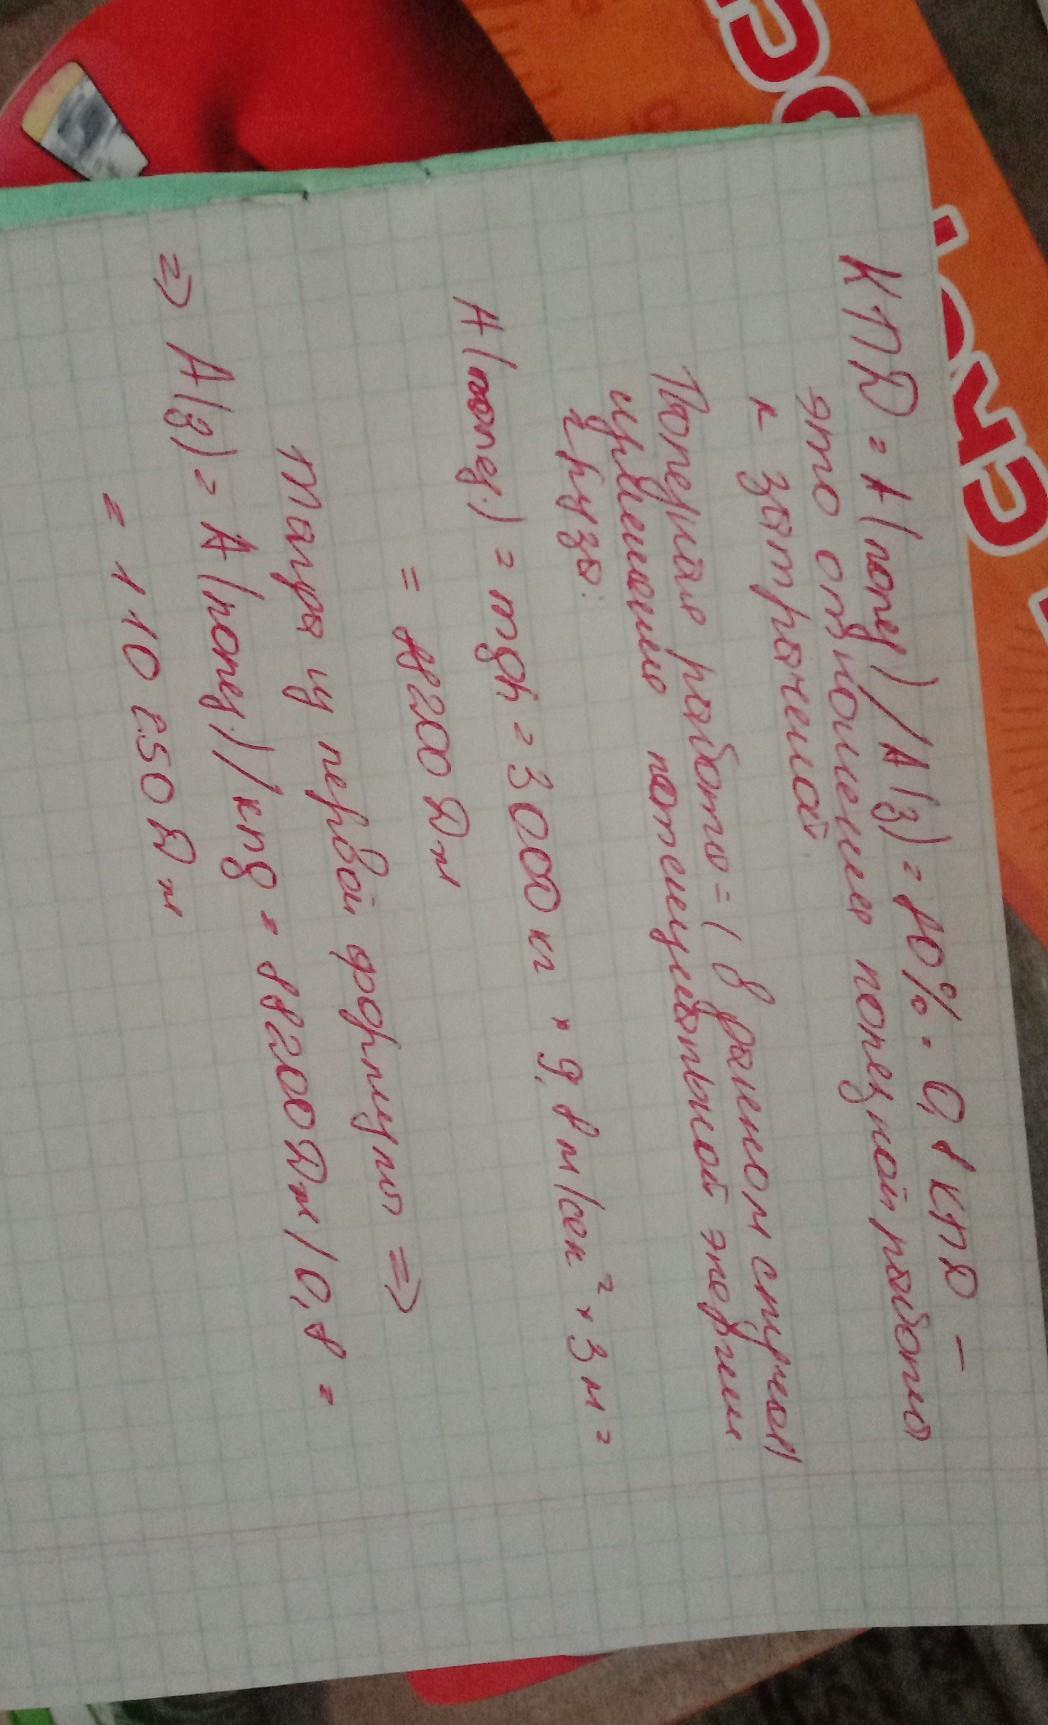 КПД = А(полез)/А(з) = 80% = 0,8 КПД –
это отношение полезной работы
к затраченной.
Полезная работа = (в данном случае)
изменению потенциальной энергии
груза:
А(полез.) = mgh = 3000 кг * 9,8 м/сек² * 3м =
= 88200 Дж
Тогда из первой формулы =>
=> А(з) = А(полез.)/кпд = 88200Дж/0,8 =
= 110 250 Дж